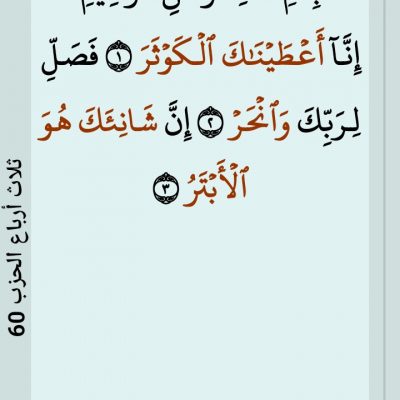 إِنَّآ أَعۡطَيۡنَٰكَ ٱلۡكَوۡثَرَ ١ فَصَلِّ
لِرَبِّكَ وَٱنۡحَرۡ ٢ إِنَّ شَانِئَكَ هُوَ
ٱلۡأَبۡتَرُ ٣
ثلاث أرباع الحزب 60